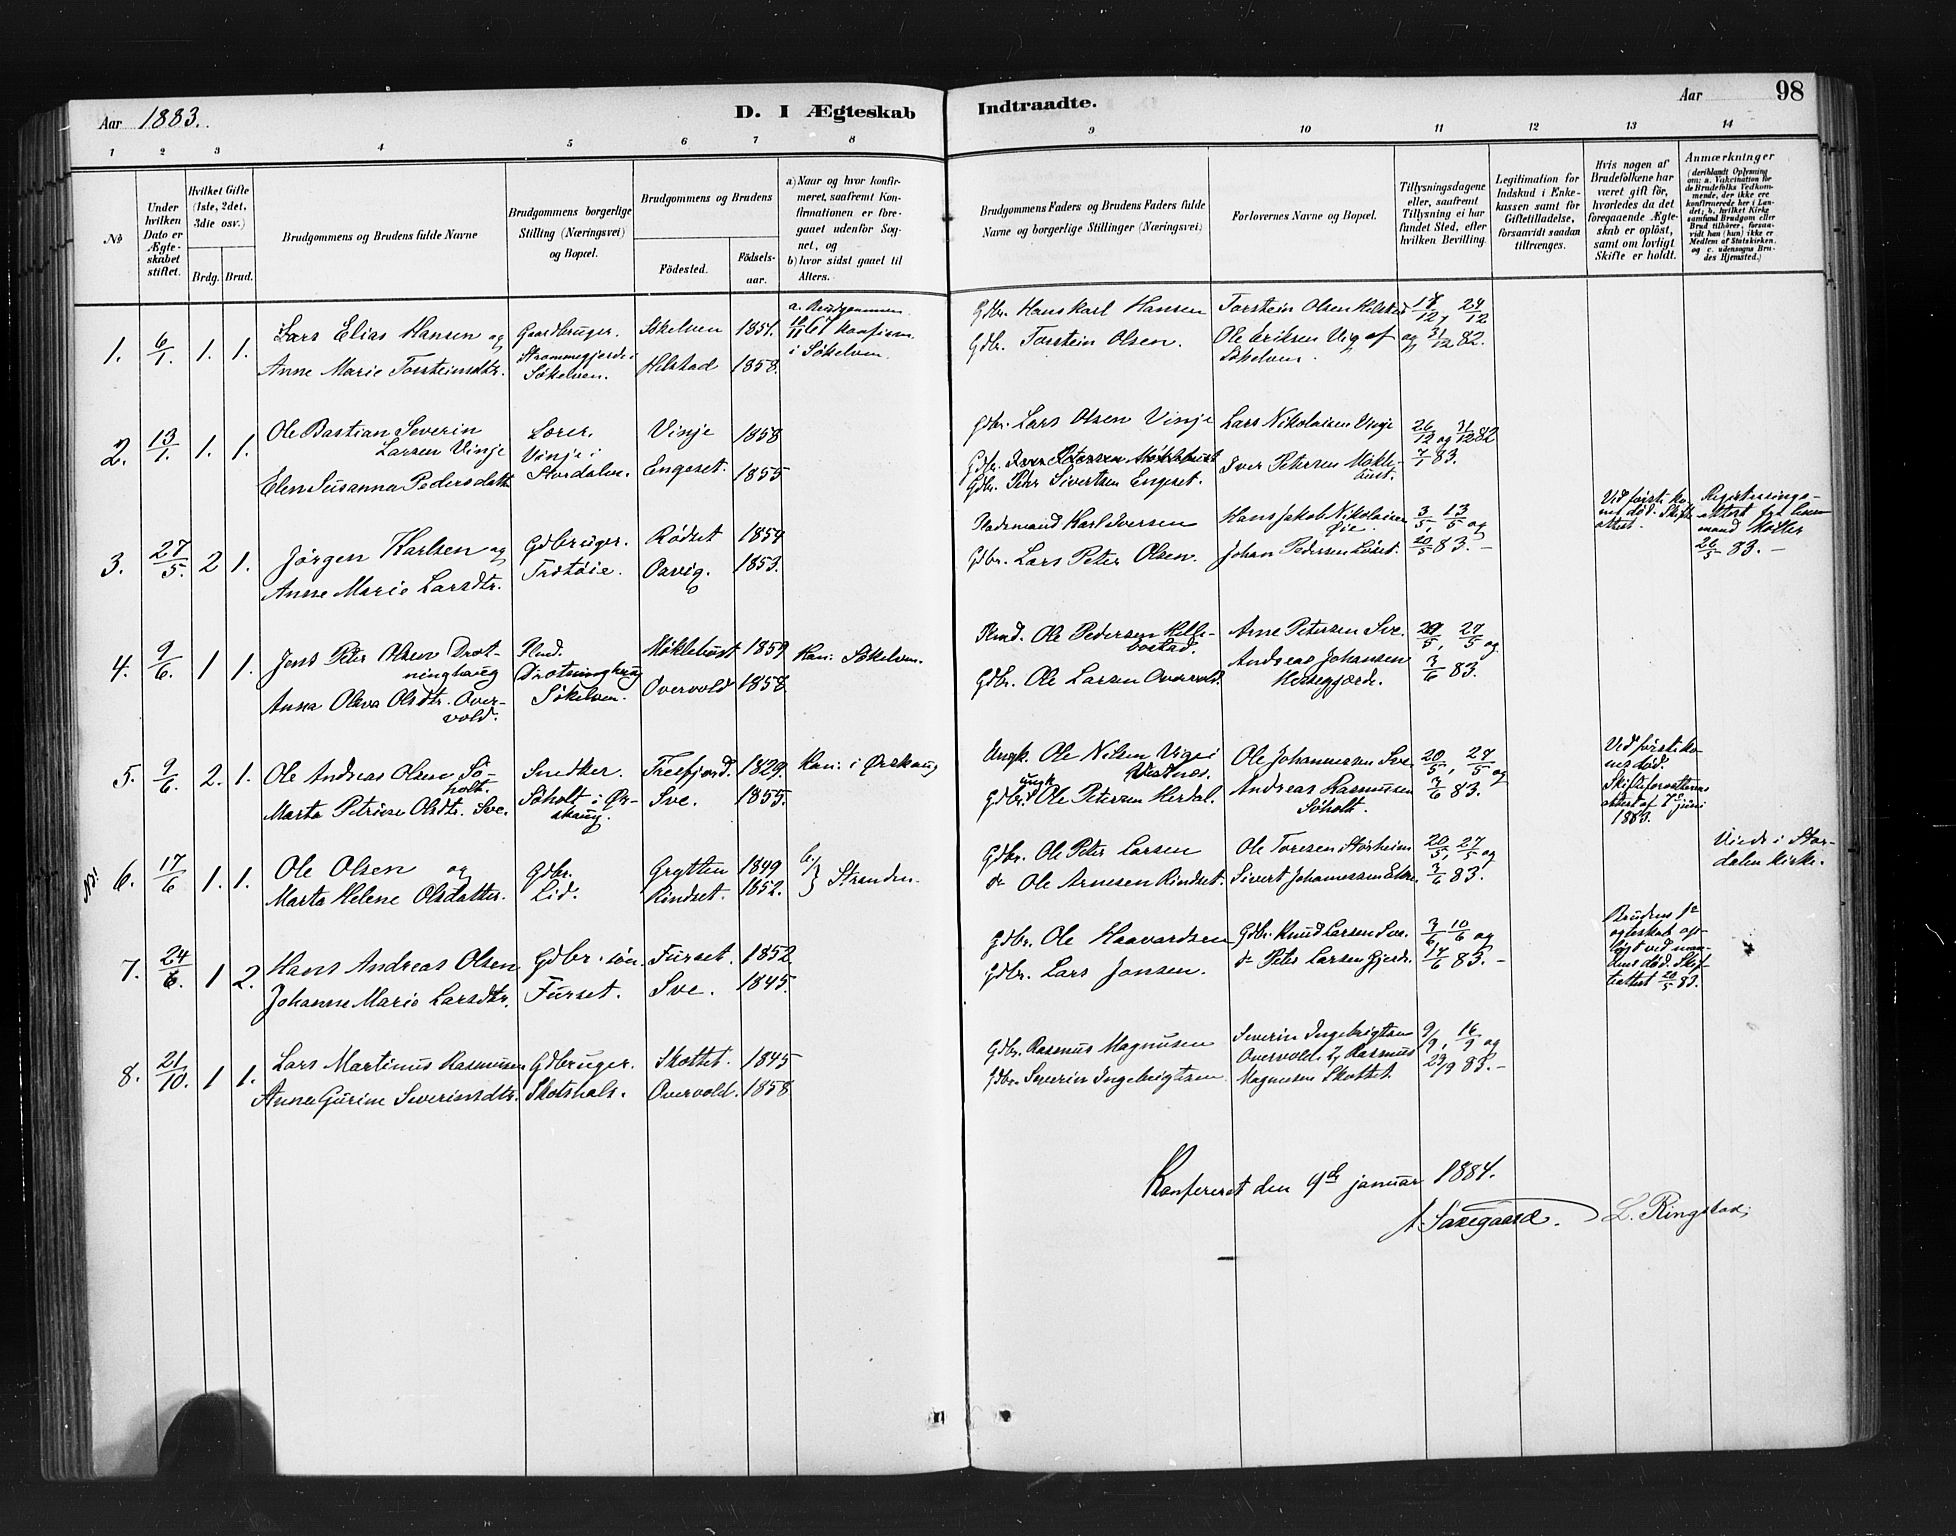 Aar 1883.
D. I Ægteskab Indtraadte.
Aar 98
1 2 3 4 5 6 7 8 9 10 11 12 13 14
No
Under hvilken Dato er Ægteskabet stiftet.
Hvilket Gifte (1ste, 2det, 3die osv.)
Brdg. Brud.
Brudgommens og Brudens fulde Navne
Brudgommens borgerlige Stilling (Næringsvei) og Bopæl.
Brudgommens og Brudens
Födested. Födselsaar.
a) Naar og hvor konfirmeret, saafremt Konfirmationen er foregaaet udenför Sognet, og
b) hvor sidst gaaet til Alters.
Brudgommens Faders og Brudens Faders fulde Navne og borgerlige Stillinger (Næringsvei)
Forlovernes Navne og Bopæl.
Tillysningsdagene eller, saafremt Tillysning ei har fundet Sted, efter hvilken Bevilling.
Legitimation for Indskud i Enkekassen samt for Giftetilladelse, forsaavidt saadan tiltrænges.
Hvis nogen af Brudefolkene har været gift för, hvorledes da det foregaaende Ægteskab er oplöst, samt om lovligt Skifte er holdt.
Anmærkninger (deriblandt Oplysning om: a. Vaccination for de Brudefolks Vedkommende, der ikke er konfirmerede her i Landet; b. hvilket Kirkesamfund Brudgom eller Brud tilhörer, forsaavidt han (hun) ikke er Medlem af Statskirken, og c. udensogns Brudes Hjemsted.)
1. 6/1. 1. 1. Lars Elias Hansen og Gardbruger. Søkelven 1857. a. Brudgommen
Anne Marie Torsteinsdtr. Strømmegjerde i Søkelven. Hilstad 1858. konfirm. i Søkelven.
Gdbr. Hans Karl Hansen Torstein Olsen Hilstad 17/12, 24/12
Gdbr. Torstein Olsen. Ole Eriksen Vig af Søkelven. og 31/12 82.
2. 13/1. 1. 1. Ole Bastian Severin Larsen Vinje Lærer. Vinje 1858
Elen Susanna Pedersdatter Vinje i Stordalen. Engeset. 1855
Gdbr. Lars Olsen Vinje Lars Nikolaisen Vinje 26/12 og 31/12 82
Gdbr. Iver Petersen Møklebust Iver Petersen Møklebust. 7/1 83.
Gdbr. Peder Sivertsen Engeset.
3. 27/5. 2 1. Jørgen Karlsen og Gdbruger. Rødset 1854
Anne Marie Larsdtr. Trætøie. Oavig. 1853.
Pladsmand Karl Iversen Hans Jakob Nikolaisen Øie 3/5, 13/5 og
Gdbr. Lars Peter Olsen. Johan Pedersen Løset. 20/5 83.-
Ved første kones død. Skifteattest.
Registreringsattest fra lensmand Møller 26/5 83.-
4. 9/6. 1 1. Jens Peter Olsen Drotninghaug Plmd. Møklebust 1859 Kan: Søkelven.
Anna Oliva Olsdtr. Overvold. Drotninghaug Søkelven. Overvold 1858
Plmd. Ole Pedersen Hellebostad. Arne Petersen Sve. 20/5, 27/5 og
Gdbr. Ole Larsen Overvold. Andreas Johansen 3/6 83.
5. 9/6. 2. 1. Ole Andreas Olsen Søholt. Snedker. Tresfjord. 1829. Kan: i Ørskaug
Marta Petrine Olsdtr. Sve. Søholt i Ørskaug. Sve. 1855.
Ungk. Ole Nilsen Vige i Vestnæs. Ole Johannessen Sve. 20/5, 27/5 og
ungk Ole Petersen Herdal. Andreas Rasmussen Søholt. 3/6 83.
Ved første kones død. Skifteforvalterens attest af 7de juni 1883.
NB! 6. 17/6 1. 1. Ole Olsen og Gdbr. Grytten 1849 b.) Stranden.
Marta Helene Olsdatter. Lid. Rindset. 1852.
Gdbr. Ole Peter Larsen Ole Toresen Storheim 20/5, 27/5 og
do Ole Arnesen Rindset. Sivert Johannessen 3/6 83.
Viede i Stordalen kirke.
7. 24/6. 1 2. Hans Andreas Olsen Gdbr. søn Furset. 1852
Johanne Marie Larsdtr. Furset. Sve. 1845.
Gdbr. Ole Haavardsen Gdbr. Knud Larsen Sve. 3/6, 10/6 og
Gdbr. Lars Jonsen. do Peter Larsen Gjerde. 17/6 83.-
Brudens 1ste ægteskab opløst ved mandens død. Skifteattest 20/5 83.
8. 21/10. 1 1. Lars Martinus Rasmussen Gdbruger. Skottet. 1845
Anne Gurine Severinsdtr. Skotshals. Overvold. 1858
Gdbr. Rasmus Magnusen Severin Ingebrigtsen Overvold. 9/9, 16/9 og
Gdbr. Severin Ingebrigtsen Rasmus Magnusen Skottet. 23/9 83.-
Konfereret den 9de januar 1884.
A Saxegaard. L. Ringstad.